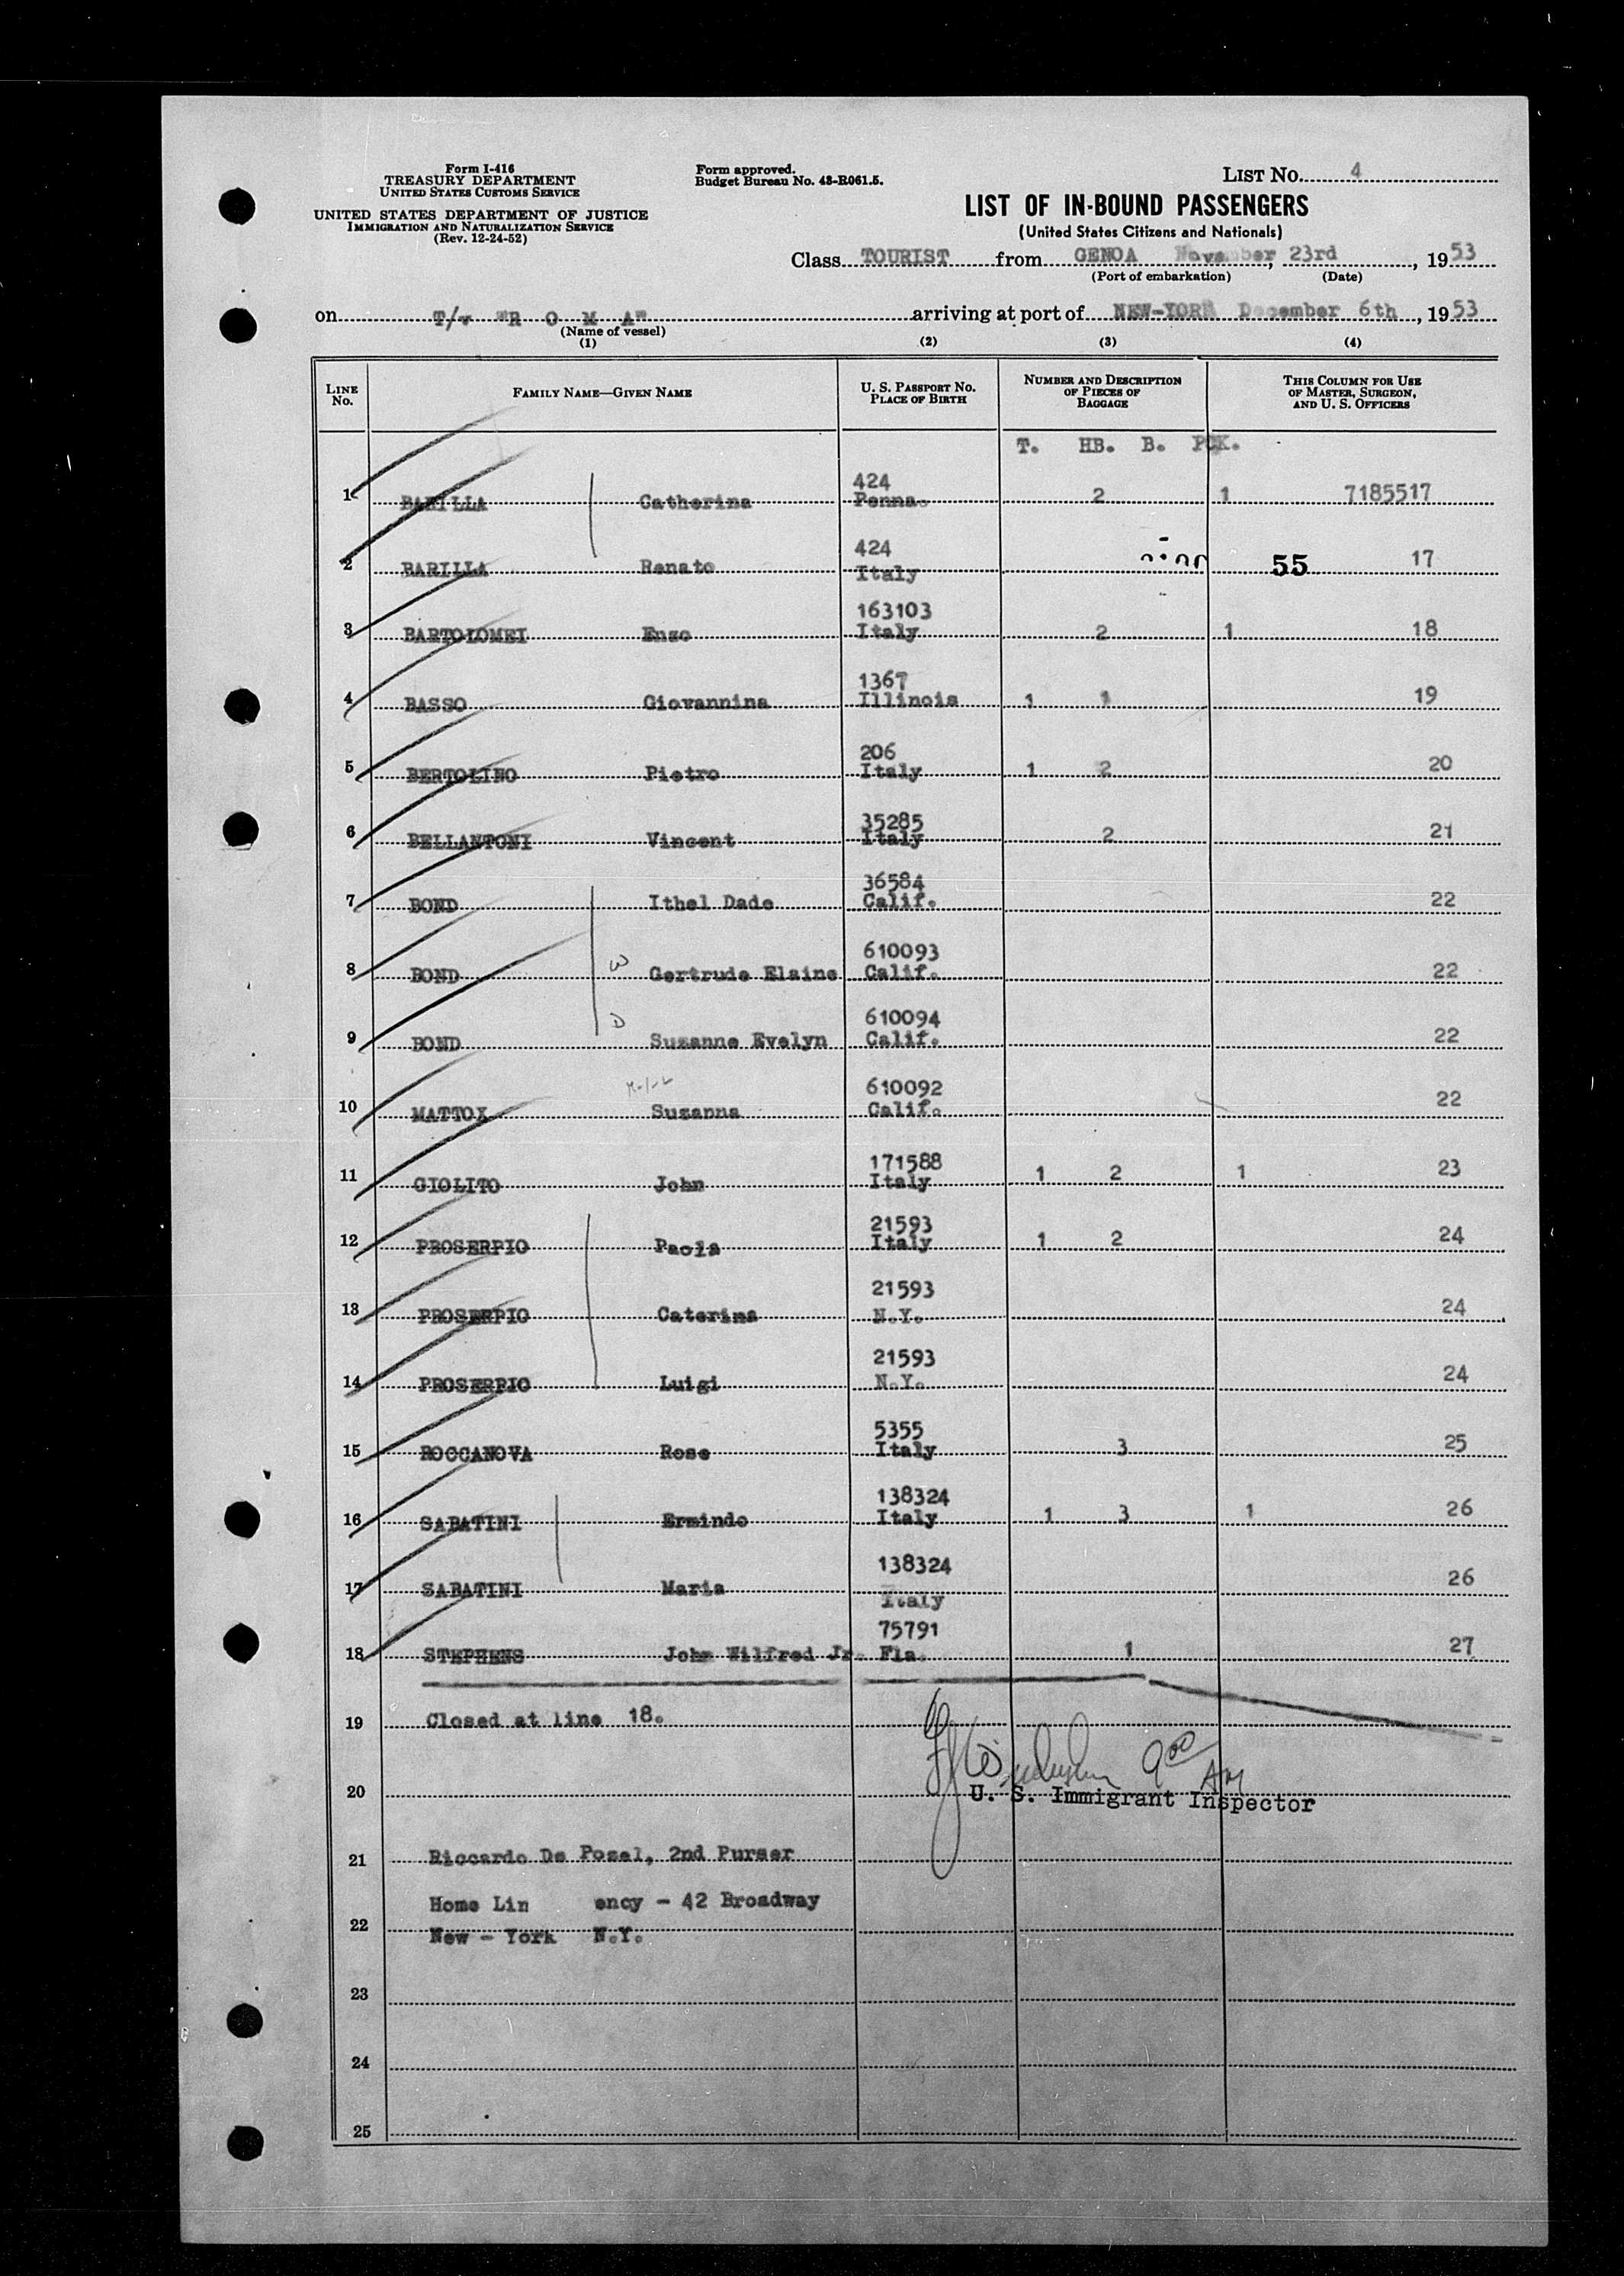 Form I-416
TREASURY DEPARTMENT
UNITED STATES CUSTOMS SERVICE
UNITED STATES DEPARTMENT OF JUSTICE
IMMIGRATION AND NATURALIZATION SERVICE
(Rev. 12-24-52)
Form approved.
Budget Bureau No. 43-R061.5.
LIST NO. 4
LIST OF IN-BOUND PASSENGERS
(United States Citizens and Nationals)
Class TOURIST from GENOA November, 23rd, 1953
(Port of embarkation) (Date)
on T/v "R O M A" arriving at port of NEW-YORK December 6th, 1953
(Name of vessel)
(1) (2) (3) (4)
LINE NO. FAMILY NAME—GIVEN NAME U. S. PASSPORT NO. PLACE OF BIRTH NUMBER AND DESCRIPTION OF PIECES OF BAGGAGE THIS COLUMN FOR USE OF MASTER, SURGEON, AND U. S. OFFICERS
T. HB. B. PCK.
424
1 BARILLA Catherina Penna. 2 1 7185517
424
2 BARILLA Renato Italy 55 17
163103
3 BARTOLOMEI Enzo Italy 2 1 18
1367
4 BASSO Giovannina Illinois 1 1 19
206
5 BERTOLINO Pietro Italy 1 2 20
35285
6 BELLANTONI Vincent Italy 2 21
36584
7 BOND Ithel Dade Calif. 22
610093
8 BOND W Gertrude Elaine Calif. 22
610094
9 BOND D Suzanne Evelyn Calif. 22
610092
10 MATTOX Suzanna Calif. 22
171588
11 GIOLITO John Italy 1 2 1 23
21593
12 PROSERPIO Paola Italy 1 2 24
21593
13 PROSERPIO Caterina N.Y. 24
21593
14 PROSERPIO Luigi N.Y. 24
5355
15 ROCCANOVA Rose Italy 3 25
138324
16 SABATINI Ermindo Italy 1 3 1 26
138324
17 SABATINI Maria Italy 26
75791
18 STEPHENS John Wilfred Jr. Fla. 1 27
19 Closed at line 18.
9 00 AM
20 U. S. Immigrant Inspector
21 Riccardo De Pozel, 2nd Purser
Home Lin ency - 42 Broadway
22 New - York N.Y.
23
24
25